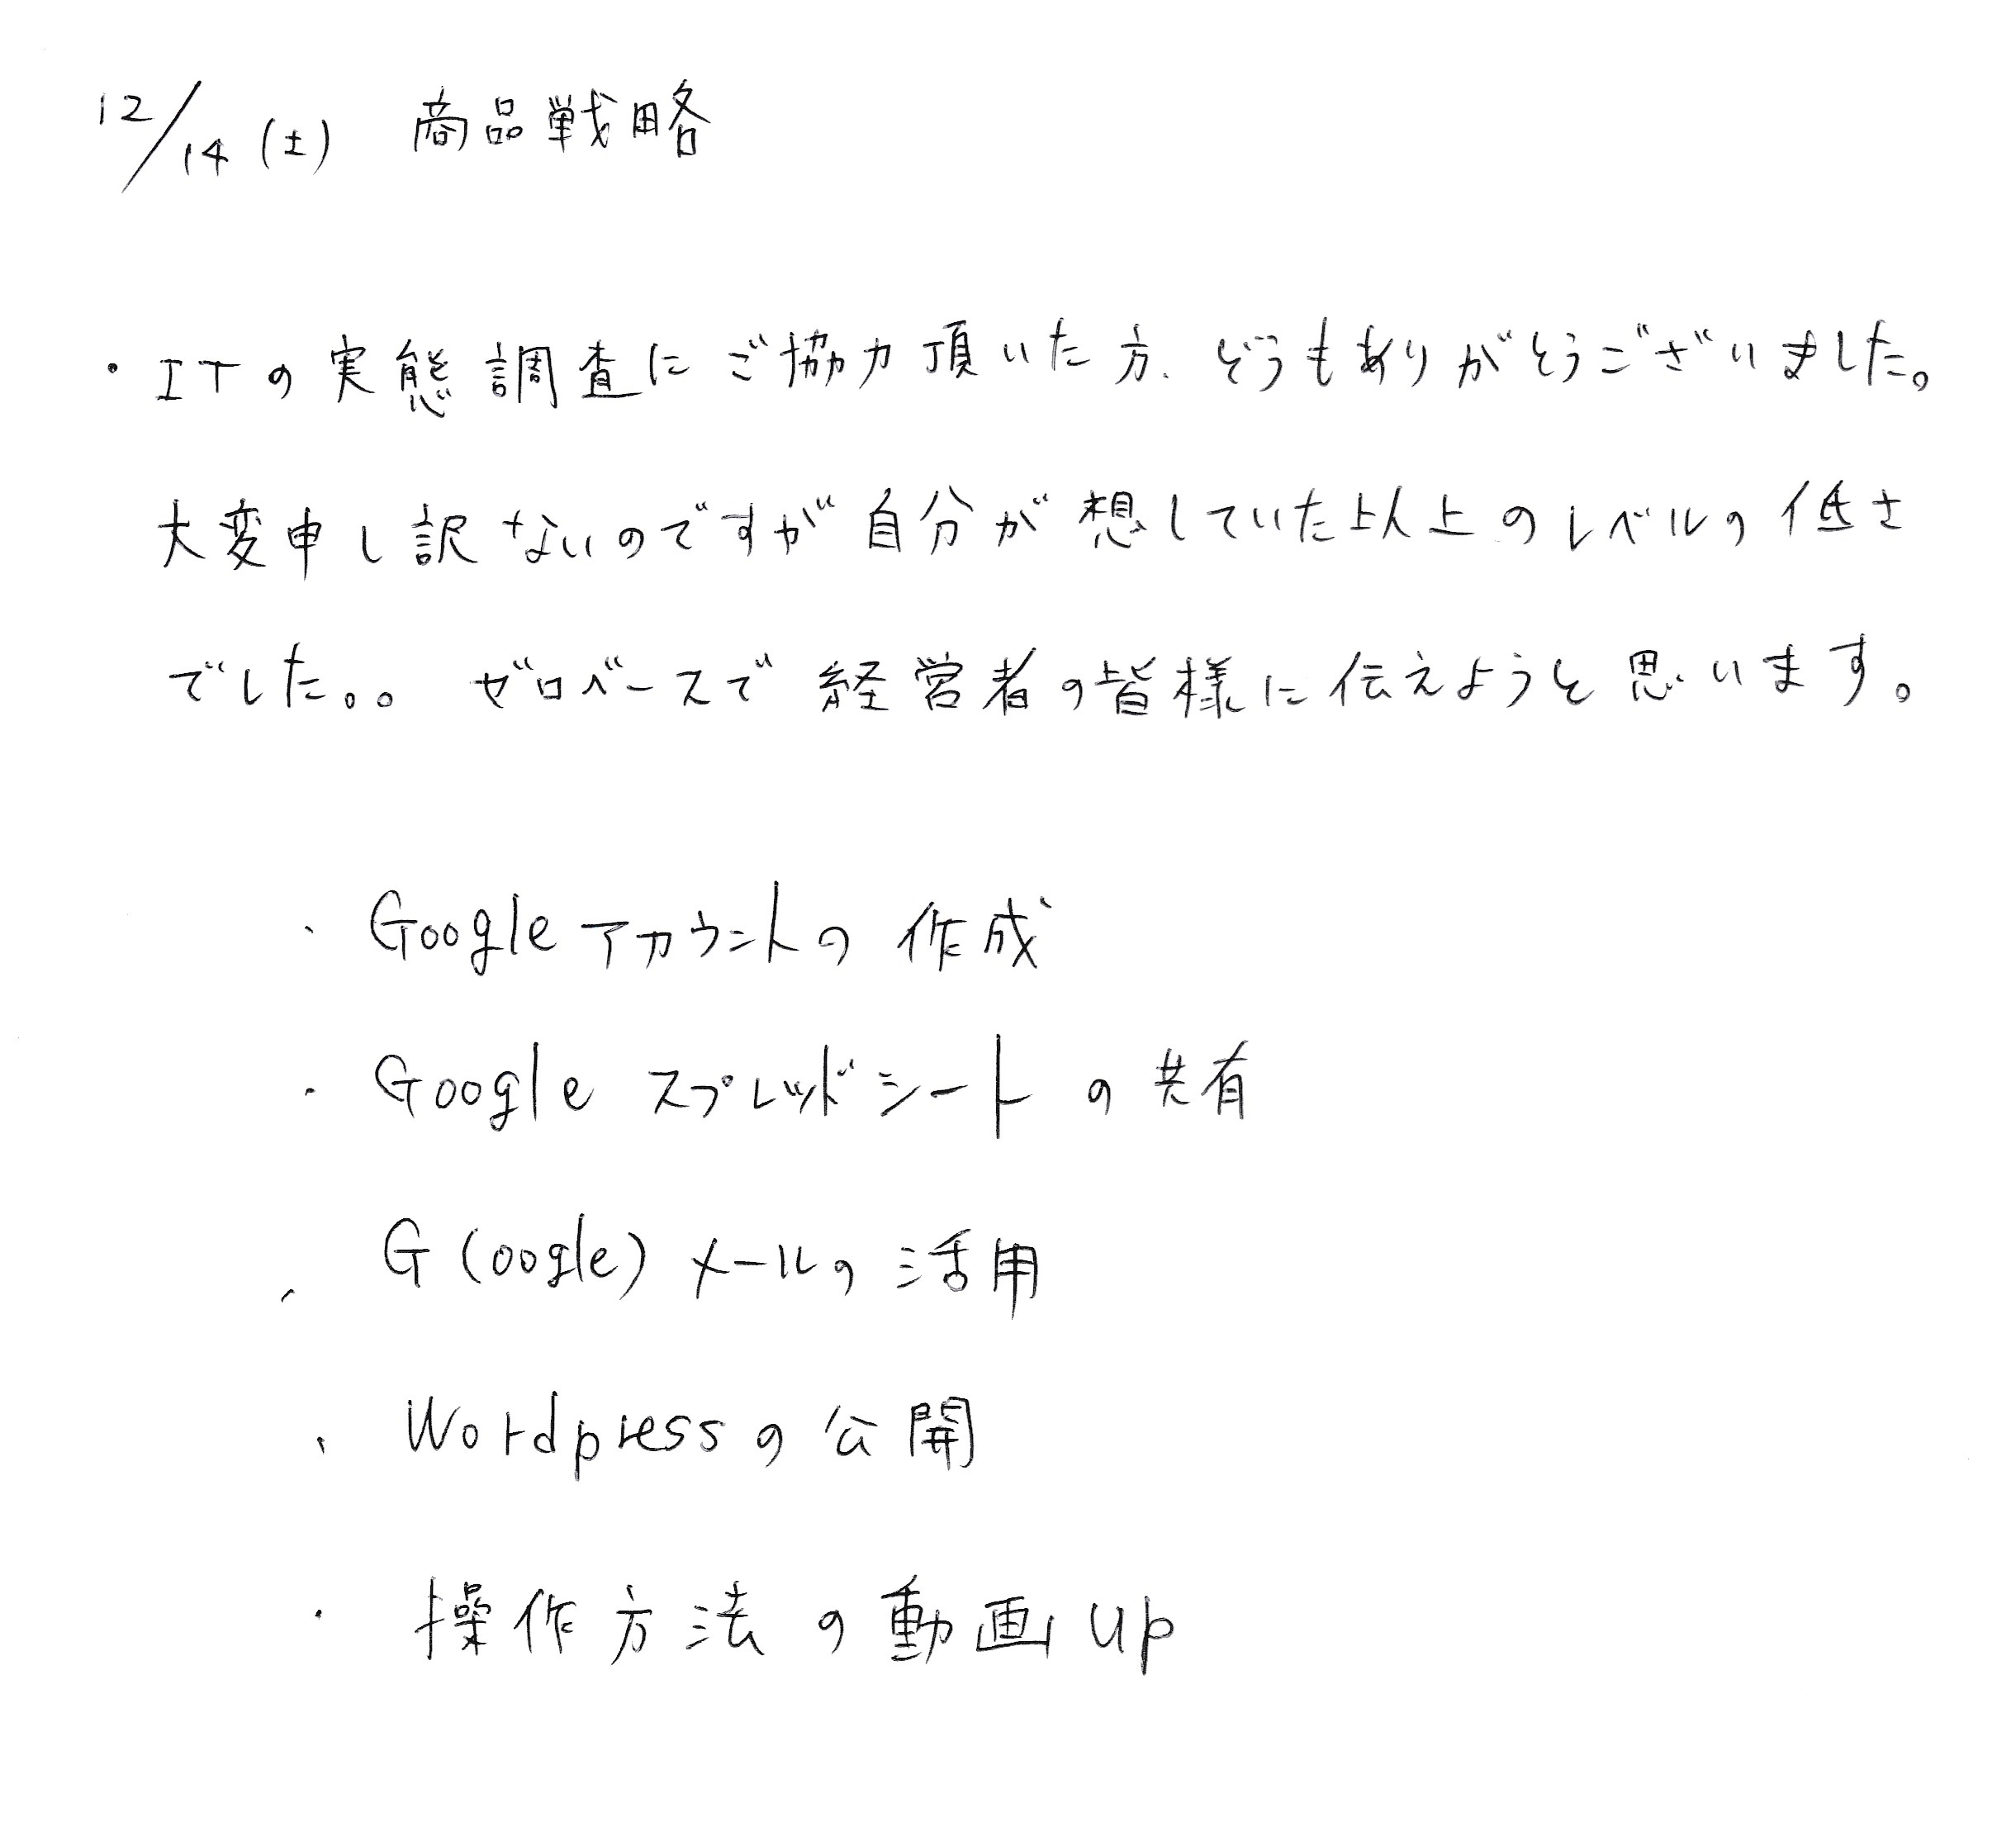 12/14(土) 商品戦略
・ITの実態調査にご協力頂いた方、どうもありがとうございました。
大変申し訳ないのですが自分が想していた以上のレベルの低さ
でした。。ゼロベースで経営者の皆様に伝えようと思います。
・Googleアカウントの作成
・Google スプレッドシートの共有
・G(oogle)メールの活用
・Wordpressの公開
・操作方法の動画up